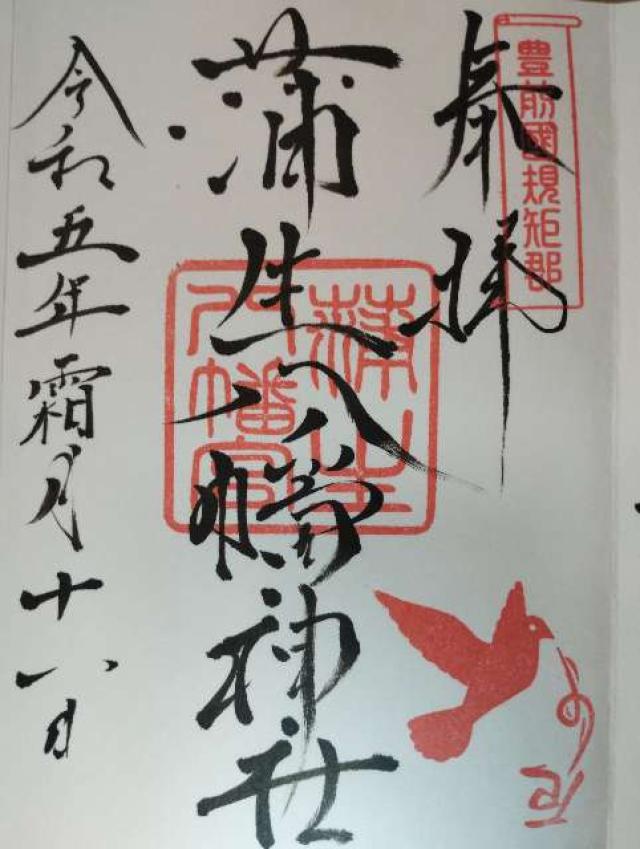 豊前國規矩郡
奉拝
蒲生八幡神社
蒲生
八幡宮
令和五年霜月十八日